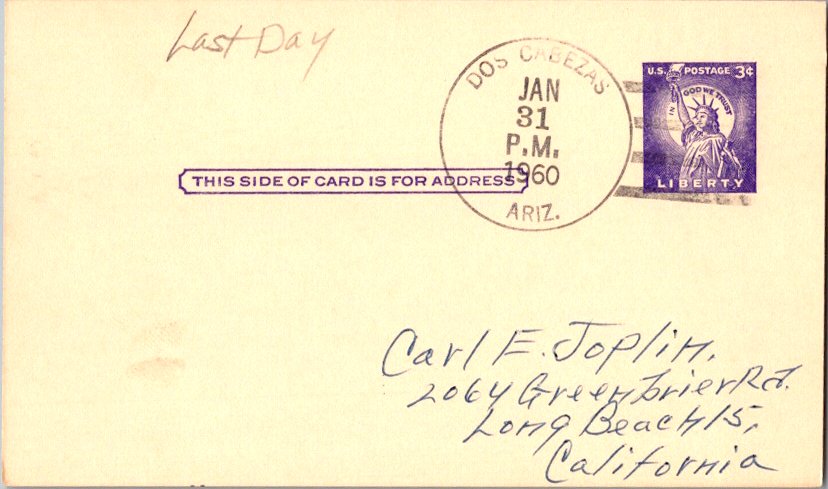 Last Day
DOS CABEZAS
JAN
31
P.M.
1960
ARIZ.
U.S. POSTAGE 3¢
IN GOD WE TRUST
LIBERTY
THIS SIDE OF CARD IS FOR ADDRESS
Carl E. Joplin,
2064 Greenbrier Rd.
Long Beach 15,
California